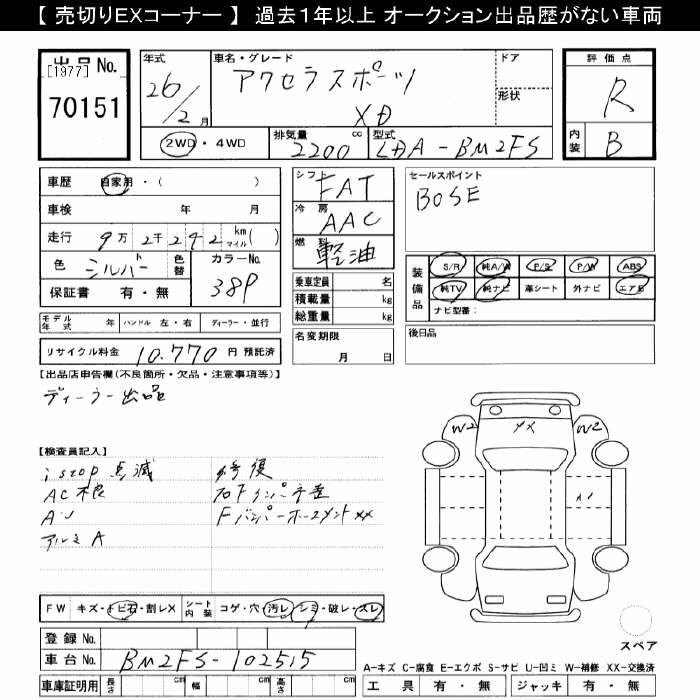 【 売切りEXコーナー 】 過去1年以上 オークション出品歴がない車両
出品 No.
[1977]
70151
年式
26/2 月
車名・グレード
アクセラスポーツ
XD
ドア
形状
評価点
R
内装
B
2WD ・ 4WD
排気量
2200 cc
型式
LDA-BM2FS
車歴 自家用・( )
車検 年 月
走行 9万 2千 2 4 2 km マイル( )
色 シルバー
色替
カラーNo.
38P
保証書 有・無
シフト
FAT
冷房
AAC
燃料
軽油
乗車定員 名
積載量 kg
総重量 kg
名変期限
月 日
セールスポイント
BOSE
装備品
S/R 純A/W P/S P/W ABS
純TV 純ナビ 革シート 外ナビ エアB
ナビ型番:
後日品
モデル年式 年 ハンドル 左・右 ディーラー・並行
リサイクル料金 10.770 円 預託済
【出品店申告欄(不良箇所・欠品・注意事項等)】
ディーラー出品
【検査員記入】
i stop 点滅
AC不良
アルミA
修復
Fバンパーホースメントxx
W2
XX
W2
A1
FW キズ・トビ石・割レX
シート内装 コゲ・穴・汚レ・シミ・破レ・スレ
登録 No.
車台 No. BM2FS-102515
車庫証明用 長さ cm 幅 cm 高さ cm
スペア
A-キズ C-腐食 E-エクボ S-サビ U-凹ミ W-補修 XX-交換済
工具 有・無 ジャッキ 有・無